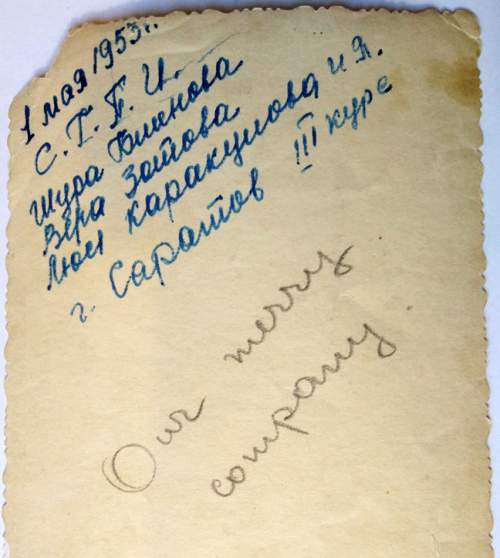 1 мая 1953 г.
С. Г. П. И.
Шура
Вера Зотова
Люся Каракулова и Я.
г. Саратов III курс
Our merry
company.